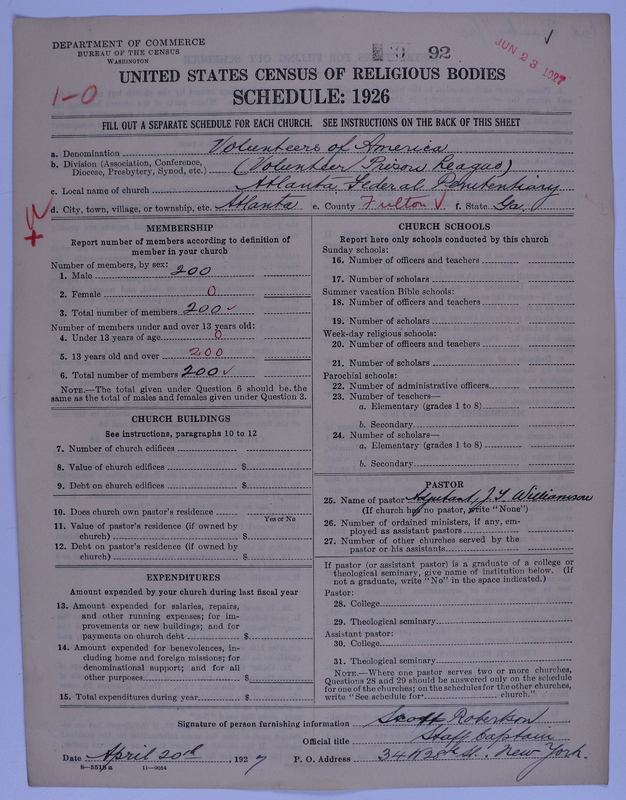 DEPARTMENT OF COMMERCE
BUREAU OF THE CENSUS
WASHINGTON
92
JUN 23 1927
1-0
UNITED STATES CENSUS OF RELIGIOUS BODIES
SCHEDULE: 1926
FILL OUT A SEPARATE SCHEDULE FOR EACH CHURCH. SEE INSTRUCTIONS ON THE BACK OF THIS SHEET
a. Denomination Volunteers of America
b. Division (Association, Conference, Diocese, Presbytery, Synod, etc.) (Volunteer Prison League)
c. Local name of church Atlanta Federal Penitentiary
d. City, town, village, or township, etc. Atlanta e. County Fulton ✓ f. State Ga.
MEMBERSHIP
Report number of members according to definition of
member in your church
Number of members, by sex:
1. Male 200
2. Female 0
3. Total number of members 200 ✓
Number of members under and over 13 years old:
4. Under 13 years of age 0
5. 13 years old and over 200
6. Total number of members 200 ✓
NOTE.—The total given under Question 6 should be the
same as the total of males and females given under Question 3.
CHURCH BUILDINGS
See instructions, paragraphs 10 to 12
7. Number of church edifices
8. Value of church edifices $
9. Debt on church edifices $
10. Does church own pastor's residence
Yes or No
11. Value of pastor's residence (if owned by
church) $
12. Debt on pastor's residence (if owned by
church) $
EXPENDITURES
Amount expended by your church during last fiscal year
13. Amount expended for salaries, repairs,
and other running expenses; for im-
provements or new buildings; and for
payments on church debt $
14. Amount expended for benevolences, in-
cluding home and foreign missions; for
denominational support; and for all
other purposes $
15. Total expenditures during year $
CHURCH SCHOOLS
Report here only schools conducted by this church
Sunday schools:
16. Number of officers and teachers
17. Number of scholars
Summer vacation Bible schools:
18. Number of officers and teachers
19. Number of scholars
Week-day religious schools:
20. Number of officers and teachers
21. Number of scholars
Parochial schools:
22. Number of administrative officers
23. Number of teachers—
a. Elementary (grades 1 to 8)
b. Secondary
24. Number of scholars—
a. Elementary (grades 1 to 8)
b. Secondary
PASTOR
25. Name of pastor Adjutant, J. S. Williamson
(If church has no pastor, write "None")
26. Number of ordained ministers, if any, em-
ployed as assistant pastors
27. Number of other churches served by the
pastor or his assistants
If pastor (or assistant pastor) is a graduate of a college or
theological seminary, give name of institution below. (If
not a graduate, write "No" in the space indicated.)
Pastor:
28. College
29. Theological seminary
Assistant pastor:
30. College
31. Theological seminary
NOTE.—Where one pastor serves two or more churches,
Questions 28 and 29 should be answered only on the schedule
for one of the churches; on the schedules for the other churches,
write "See schedule for church."
Signature of person furnishing information Scott Robertson
Official title Staff Captain
Date April 20th, 1927 P. O. Address 34 W 28th St. New York.
8—5513a 11—9064